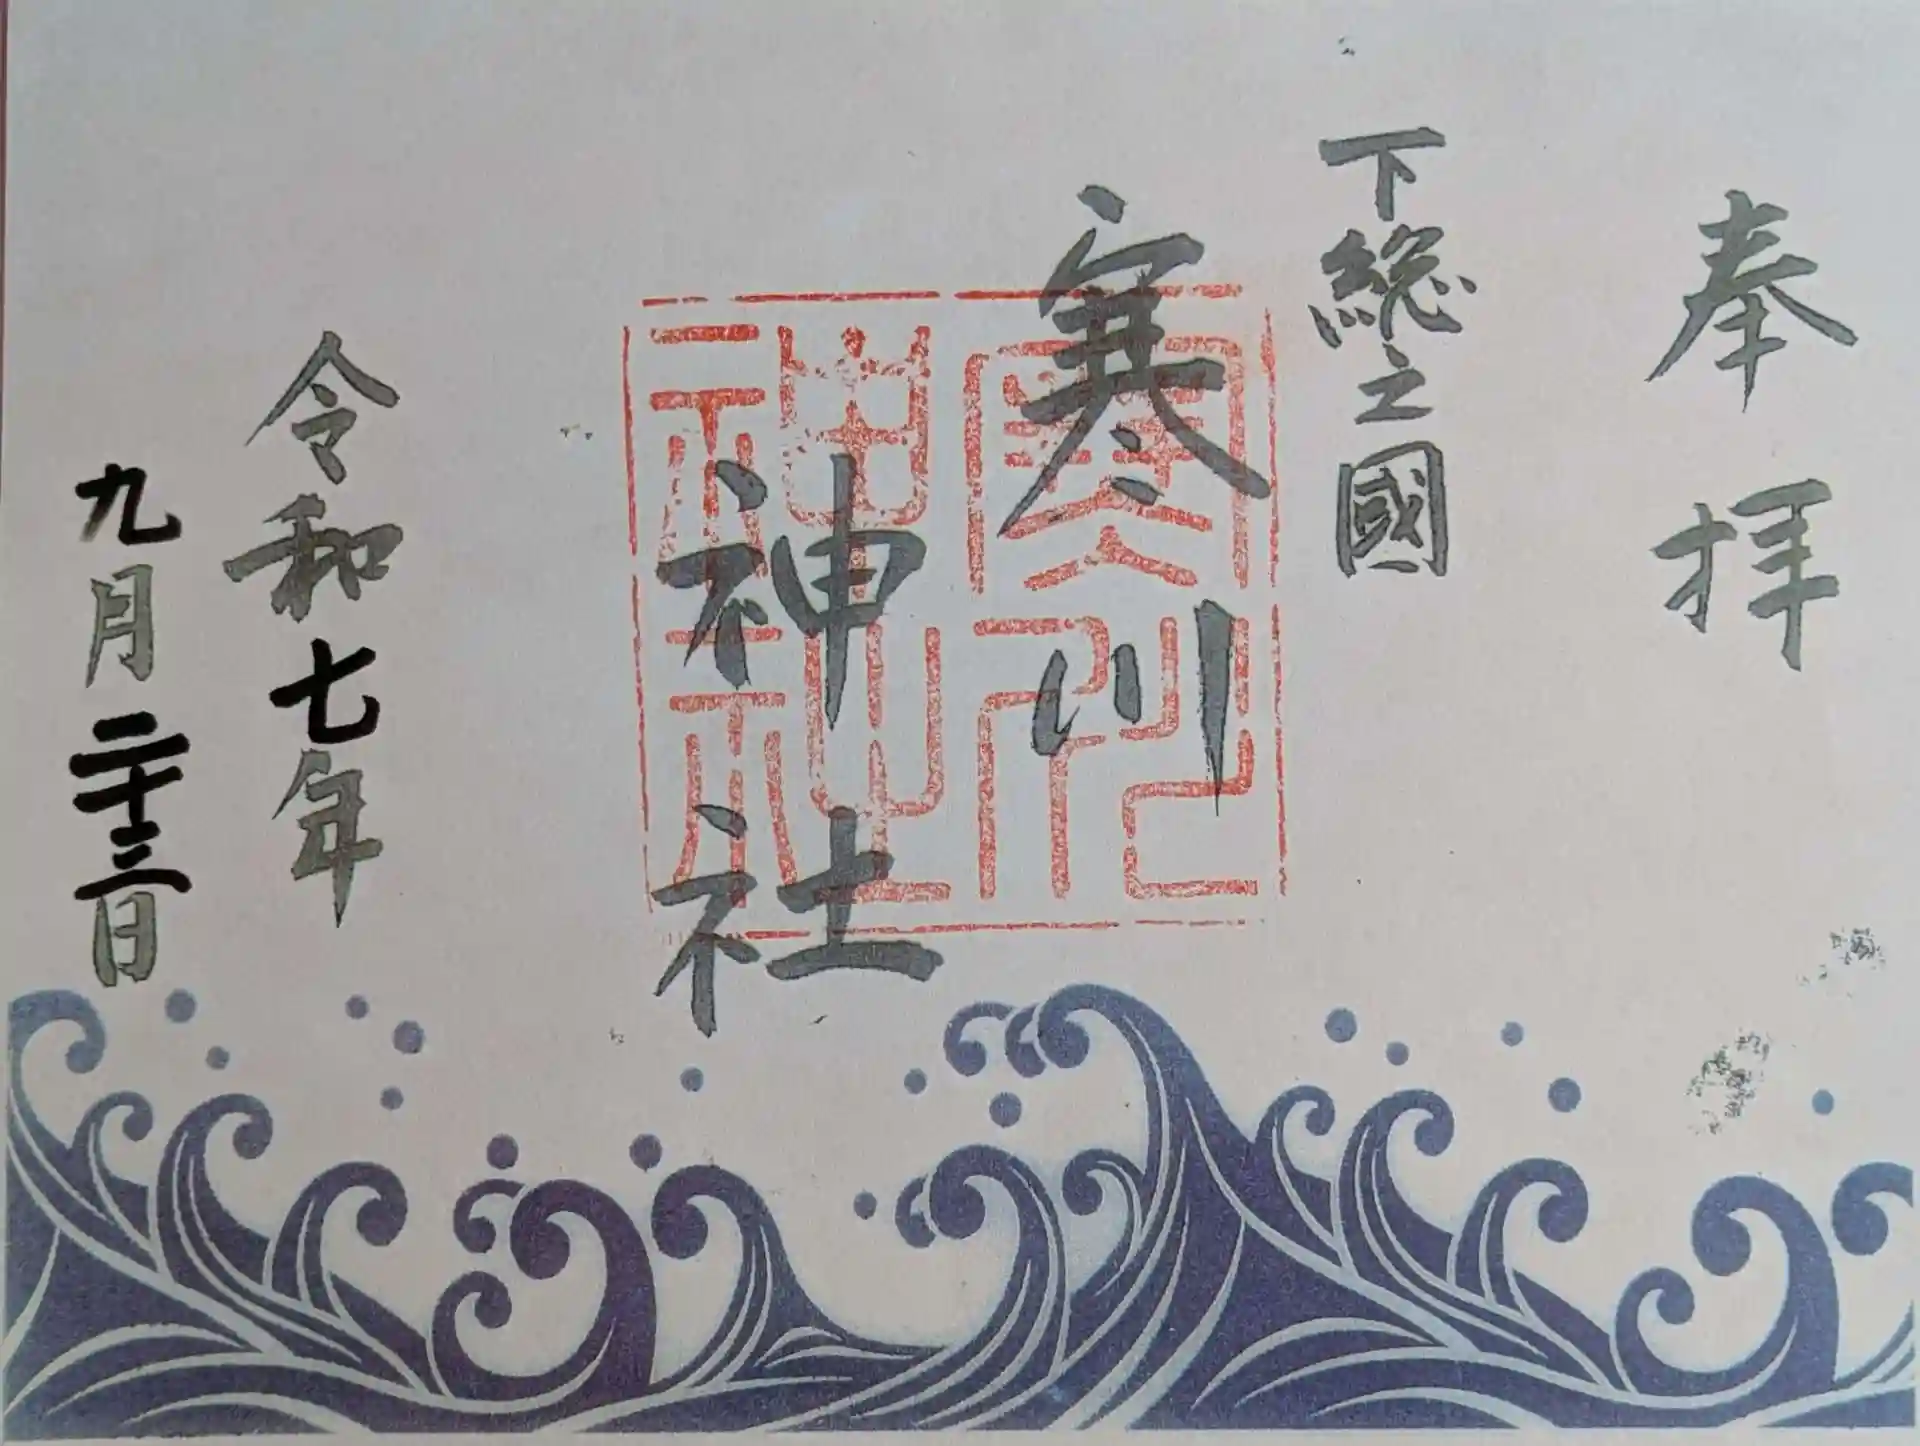 奉拝
下総之國
寒川
神社
寒川
神社
令和七年
九月二十三日